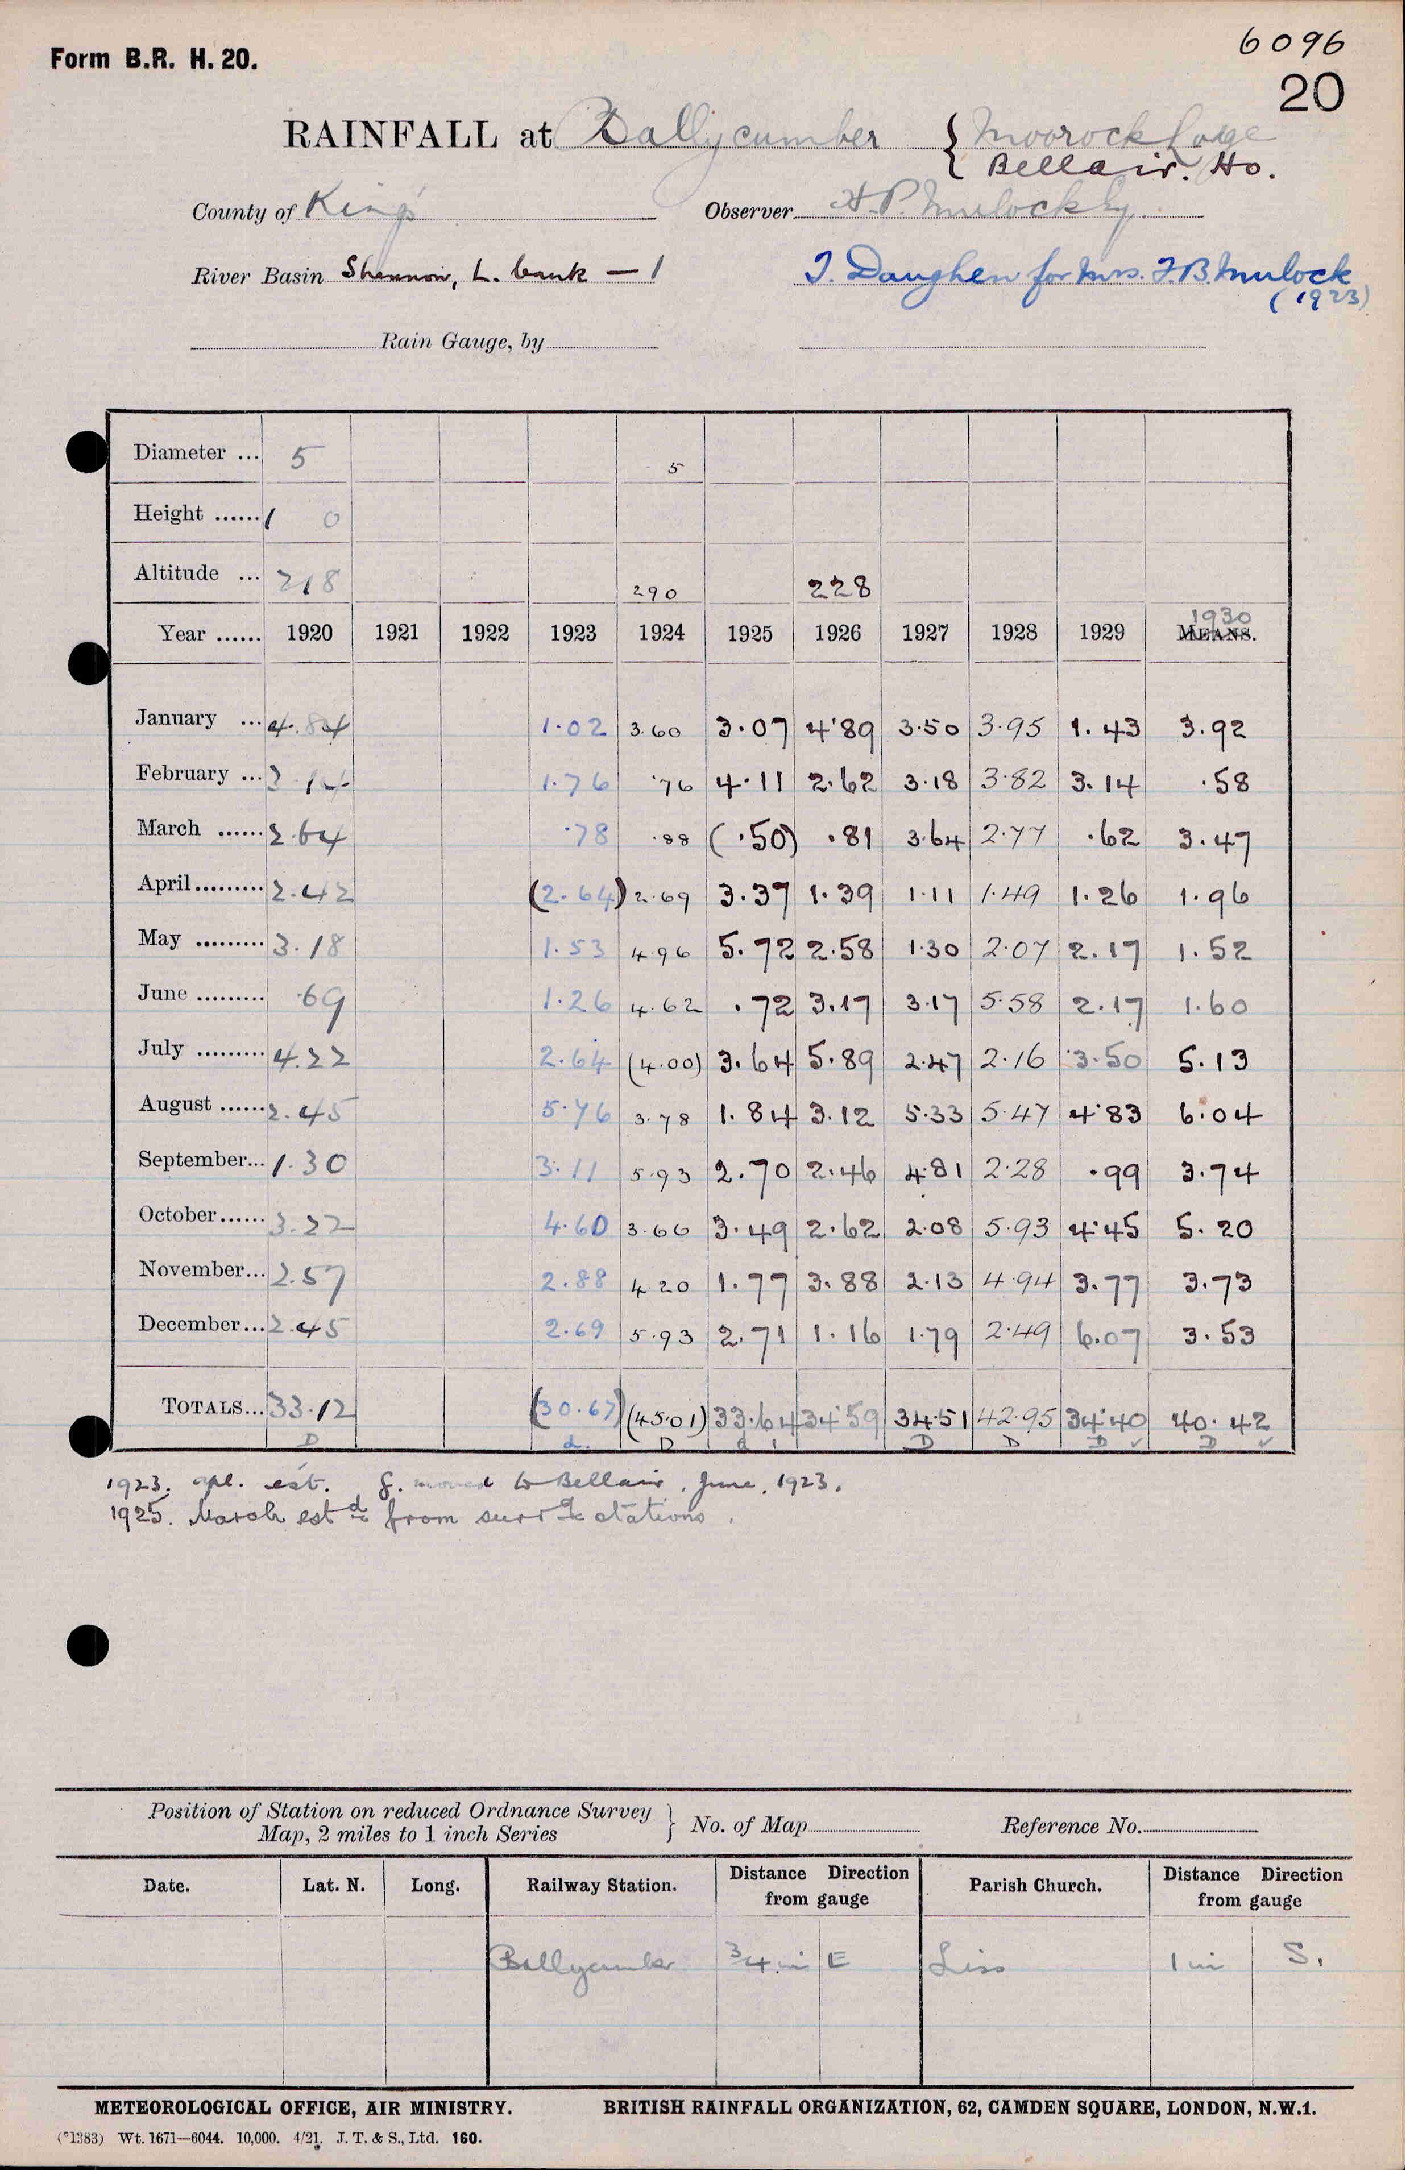 Form B.R. H. 20.
6096
20
RAINFALL at Ballycumber { Moorock Lodge
Bellair. Ho.
County of King's Observer H. P. Mulock Esq
River Basin Shannon, L. bank — 1 T. Daughen for Mrs. F.B. Mulock
(1923)
Rain Gauge, by
Diameter ... 5 5
Height ...... 1 0
Altitude ... 218 290 228
1930
Year ...... 1920 1921 1922 1923 1924 1925 1926 1927 1928 1929 MEANS.
January ... 4.84 1.02 3.60 3.07 4.89 3.50 3.95 1.43 3.92
February ... 3.14 1.76 .76 4.11 2.62 3.18 3.82 3.14 .58
March ...... 2.64 .78 .88 (.50) .81 3.64 2.77 .62 3.47
April ......... 2.42 (2.64) 2.69 3.37 1.39 1.11 1.49 1.26 1.96
May ......... 3.18 1.53 4.96 5.72 2.58 1.30 2.07 2.17 1.52
June ......... .69 1.26 4.62 .72 3.17 3.17 5.58 2.17 1.60
July ......... 4.22 2.64 (4.00) 3.64 5.89 2.47 2.16 3.50 5.13
August ...... 2.45 5.76 3.78 1.84 3.12 5.33 5.47 4.83 6.04
September... 1.30 3.11 5.93 2.70 2.46 4.81 2.28 .99 3.74
October...... 3.22 4.60 3.66 3.49 2.62 2.08 5.93 4.45 5.20
November... 2.57 2.88 4.20 1.77 3.88 2.13 4.94 3.77 3.73
December... 2.45 2.69 5.93 2.71 1.16 1.79 2.49 6.07 3.53
TOTALS... 33.12 (30.67) (45.01) 33.64 34.59 34.51 42.95 34.40 40.42
D d. D D D D ✓ D ✓
1923. apl. est. g. moved to Bellair, June, 1923.
1925. March estd from surrdg stations.
Position of Station on reduced Ordnance Survey
Map, 2 miles to 1 inch Series } No. of Map Reference No.
Date. Lat. N. Long. Railway Station. Distance Direction from gauge Parish Church. Distance Direction from gauge
Ballycumber 3/4 m E Liss 1 m S.
METEOROLOGICAL OFFICE, AIR MINISTRY. BRITISH RAINFALL ORGANIZATION, 62, CAMDEN SQUARE, LONDON, N.W.1.
(*1383) Wt. 1671—6044. 10,000. 4/21. J. T. & S., Ltd. 160.